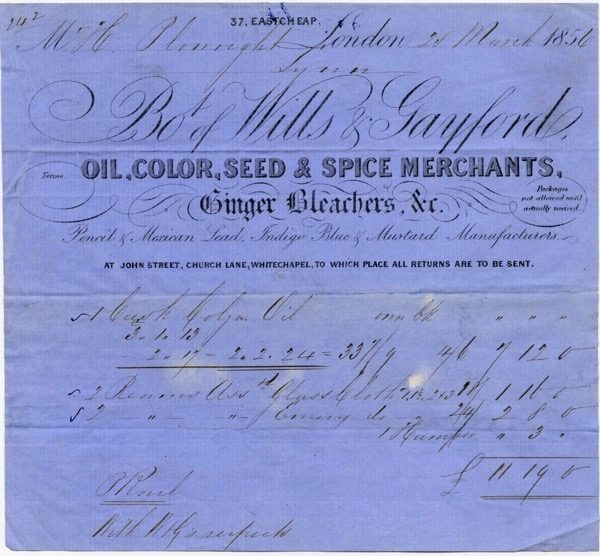 37, EASTCHEAP.
242
Mr H. Plowright London 28 March 1856
Lynn
Bot of Wills & Gayford,
Terms
OIL, COLOR, SEED & SPICE MERCHANTS,
Ginger Bleachers, &c.
Packages not allowed until actually received.
Pencil & Mexican Lead, Indigo Blue & Mustard Manufacturers
AT JOHN STREET, CHURCH LANE, WHITECHAPEL, TO WHICH PLACE ALL RETURNS ARE TO BE SENT.
1 Cask Colza Oil " " "
3. 1. 13
2. 17 = 2. 2. 24 = 4/6 7 12 0
2 Reams Glass Cloth 1 16 0
2 " " Emery do 24/ 2 8 0
1 Hamper " 3 "
£ 11 19 0
With W&G's respects